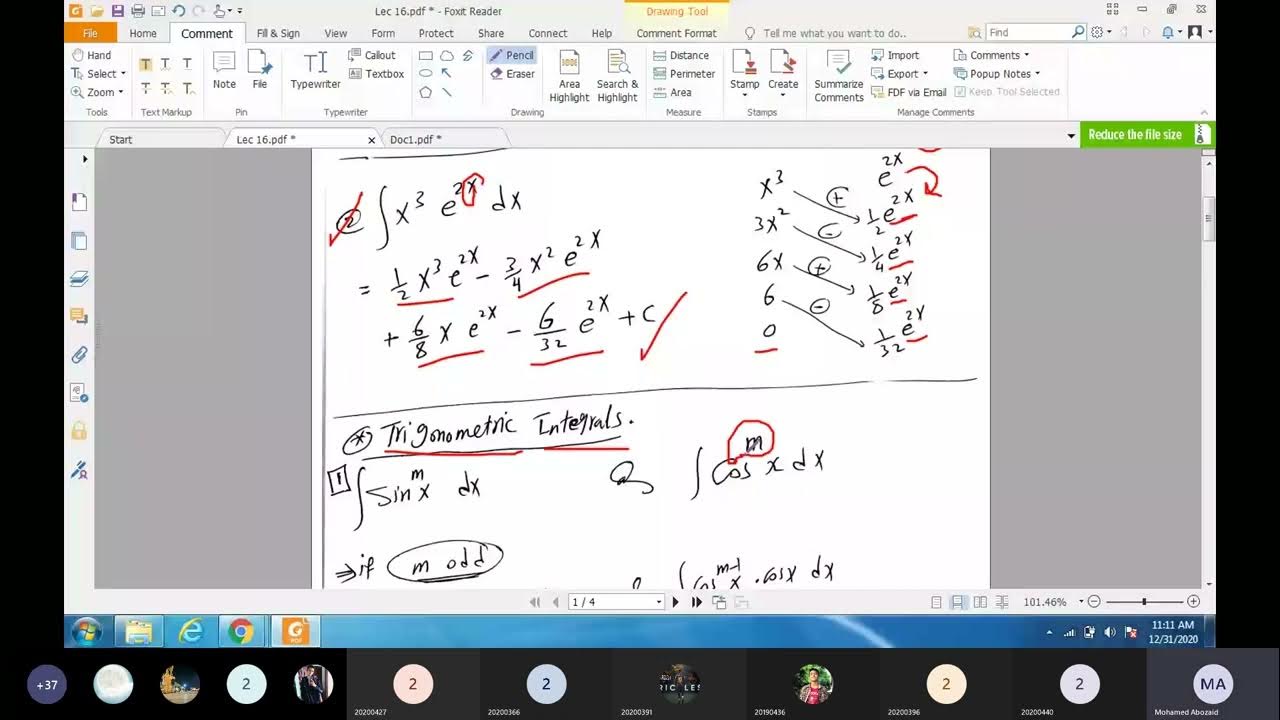 Lec 16.pdf * - Foxit Reader
Drawing Tool
File Home Comment Fill & Sign View Form Protect Share Connect Help Comment Format Tell me what you want to do.. Find
Hand
Select
Zoom
Tools
Text Markup
Note
File
Pin
Typewriter
Callout
Textbox
Typewriter
Pencil
Eraser
Drawing
Area Highlight
Search & Highlight
Distance
Perimeter
Area
Measure
Stamp
Create
Stamps
Summarize Comments
Import
Export
FDF via Email
Comments
Popup Notes
Keep Tool Selected
Manage Comments
Start Lec 16.pdf * Doc1.pdf * Reduce the file size
② ∫ x³ e^{2x} dx
= 1/2 x³ e^{2x} - 3/4 x² e^{2x}
+ 6/8 x e^{2x} - 6/32 e^{2x} + c
x³ e^{2x}
3x² + 1/2 e^{2x}
6x - 1/4 e^{2x}
6 + 1/8 e^{2x}
0 - 1/32 e^{2x}
* Trigonometric Integrals.
1 ∫ sin^m x dx & ∫ cos^m x dx
⇒ if m odd
∫ cos^{m-1} x . cosx dx
1 / 4
101.46%
11:11 AM
12/31/2020
+37 2 2 2 2 2 MA
20200427 20200366 20200391 20190436 20200396 20200440 Mohamed Abozaid